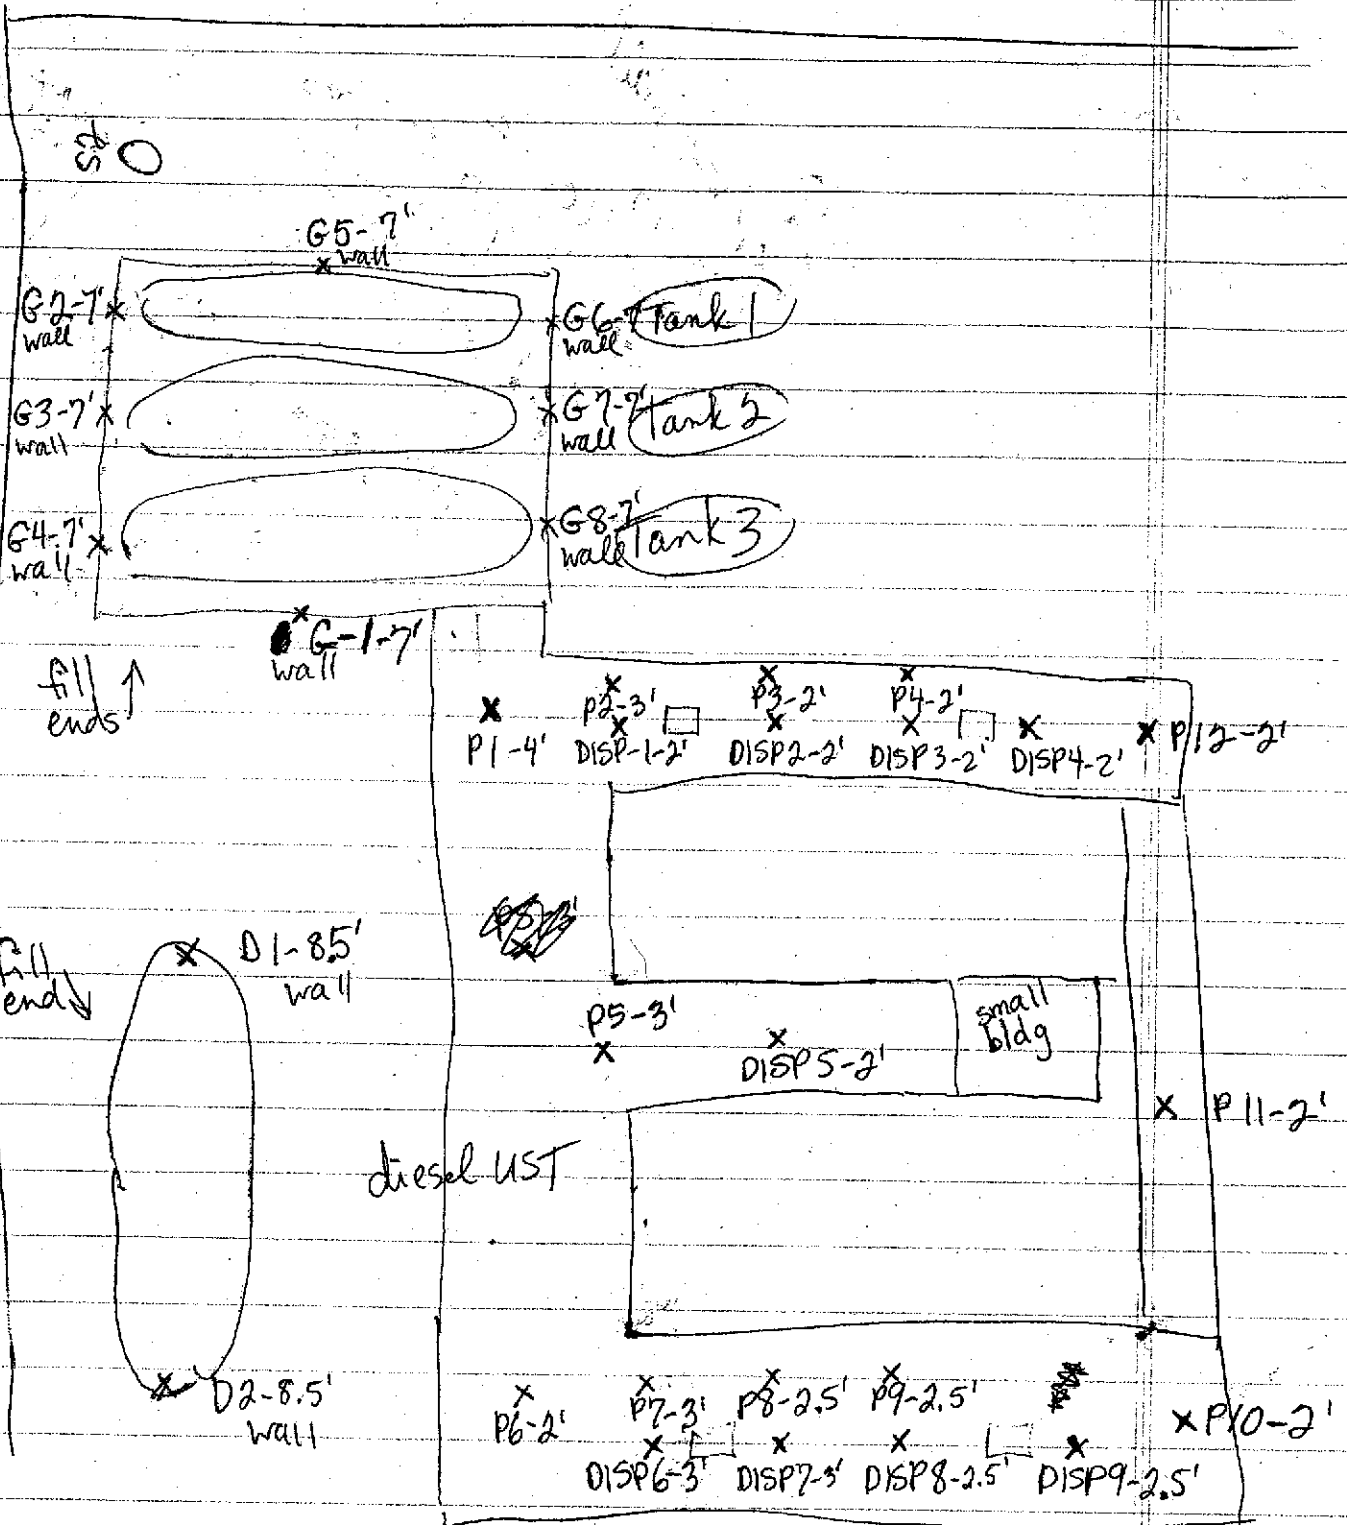 G5-7'
wall
G2-7'
wall
G6-7'
wall
Tank 1
G3-7'
wall
G7-7'
wall
Tank 2
G4-7'
wall
G8-7'
wall
Tank 3
G-1-7'
wall
fill
ends
P2-3'
P3-2'
P4-2'
P1-4'
DISP-1-2'
DISP2-2'
DISP3-2'
DISP4-2'
P12-2'
fill
end
D1-8.5'
wall
P5-3'
DISP5-2'
small
bldg
P11-2'
diesel UST
D2-8.5'
wall
P6-2'
P7-3'
P8-2.5'
P9-2.5'
P10-2'
DISP6-3'
DISP7-3'
DISP8-2.5'
DISP9-2.5'